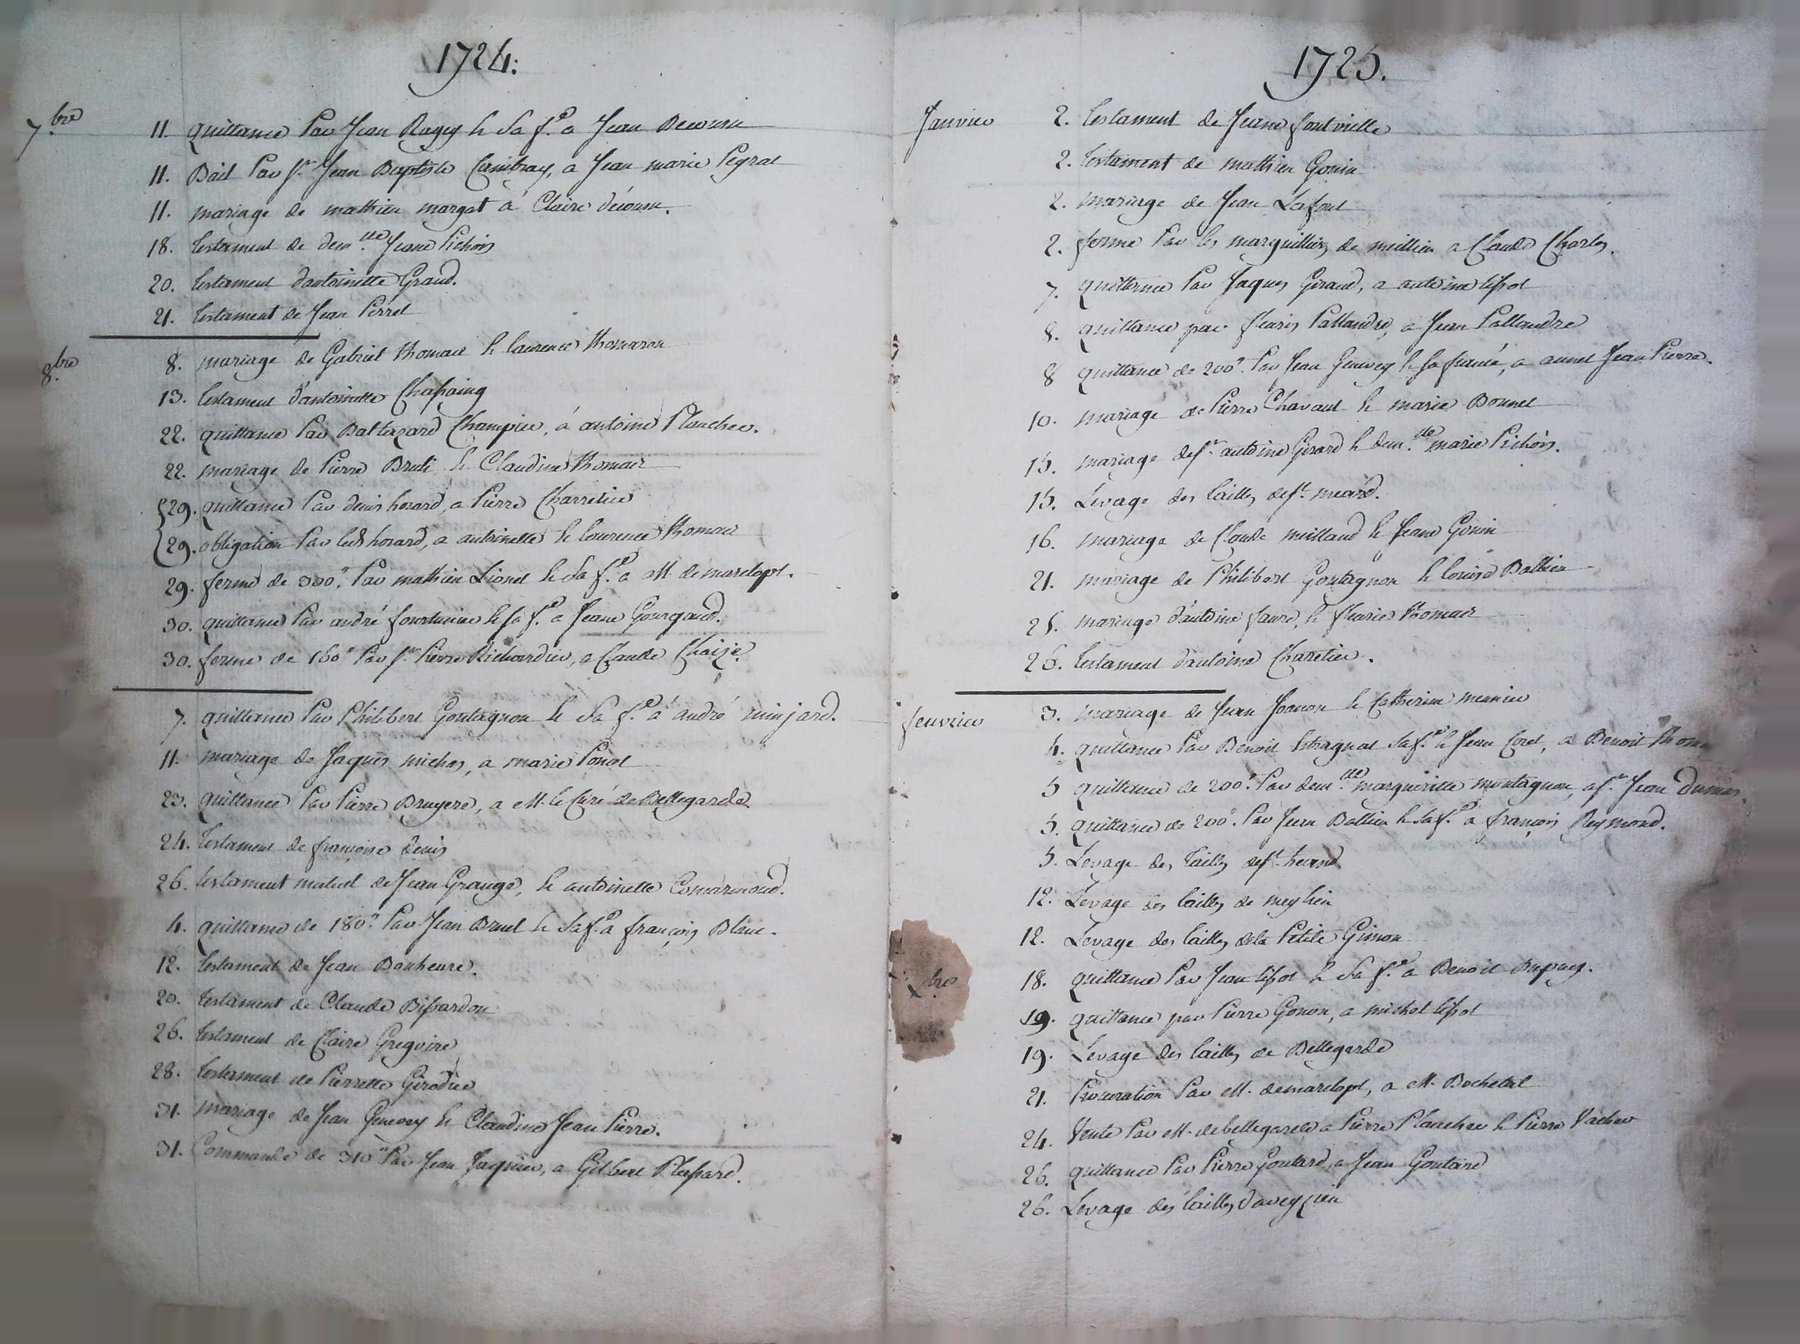 1724.
7.bre 11. quittance Par Jean Ragey & Sa f.e a Jean Decoure
11. Bail Par s.r Jean Baptiste Cambray, a Jean marie Peyrat
11. mariage de mathieu margat a Claire découre.
18. testament de dem.lle Jeane Pichois
20. testament d'antoinette Graud.
21. testament de Jean Perret
8.bre 8. mariage de Gabriel thomas & laurence thomaron
13. testament d'antoinette Chassaing
22. quittance Par Baltazard Champier, á antoine Plancher.
22. mariage de Pierre Bruti & Claudine thomas
29. quittance Par denis horard, a Pierre Charretier
29. obligation Par led horard, a antoinette & laurence thomas
29. ferme de 300.# Par mathieu Lionet & Sa f.e a M. demarclopt.
30. quittance Par andré fourtunier & sa f.e a Jeane Gourgaud.
30. ferme de 160# Par s.r Pierre Richardier, a Claude Chaize
7. quittance Par Philibert Goutagnon & Sa f.e á andré minjard.
11. mariage de Jaques michas, a marie Ponot
23. quittance Par Pierre Bruyere, a M. le Curé de Bellegarde
24. testament de françoise denis
26. testament mutuel de Jean Grange, & antoinette Comarmoud.
4. quittance de 180.# Par Jean Brunt & Sa f.e a françois Blanc.
12. testament de Jean Bonheure.
20. testament de Claude Bissardon
26. testament de Claire Gregoire
28. testament de Pierrette Girodier
31. mariage de Jean Genevey & Claudine Jean Pierre.
31. Commande de 310# Par Jean Jaquier, a Gilbert Plassard.
1725.
Janvier 2. testament de Jeane fontvielle
2. testament de mathieu Gonin
2. mariage de Jean Lafont
2. ferme Par les marguilliers de meillieu a Claude Charles.
7. quittance Par Jaques Giraud, a antoine tissot
8. quittance par fleurie Pallandre, a Jean Pallandre
8 quittance de 200# Par Jean Genevey & sa fiancée, a annet Jean Pierre.
10. mariage de Pierre Chavant & marie Bonnet
15. mariage de s.r antoine Girard & dem.lle marie Pichois.
15. Levage des tailles de s.t meard.
16. mariage de Claude meillaud & Jeane Gonin
21. mariage de Philibert Goutagnon & louise Bathieu
25. mariage d'antoine faure, & fleurie thomas
26. testament d'antoine Charetier.
feuvrier 3. mariage de Jean Joanon & Catherine meunier
4. quittance Par Benoit Estragnat sa f.e & Jean Coret, a Benoit thom
5 quittance de 200# Par dem.lle margueritte montagnon, a s.r Jean dumas.
5. quittance de 200# Par Jean Bathieu & Sa f.e a françois Reymond.
5. Levage des tailles de s.t heand
12. Levage des tailles de meylieu
12. Levage des tailles de la Petite Gimon
Xbre 18. quittance Par Jean tissot & Sa f.e a Benoit Dupuy.
19. quittance par Pierre Gonon, a michel tissot
19. Levage des tailles de Bellegarde
21. Procuration Par M. demarclopt, a M. Bochetal
24. Vente Par M. de bellegarde a Pierre Plancher & Pierre Vacher
26. quittance Par Pierre Goutard, a Jean Goutard
26. Levage des tailles d'aveyzieu